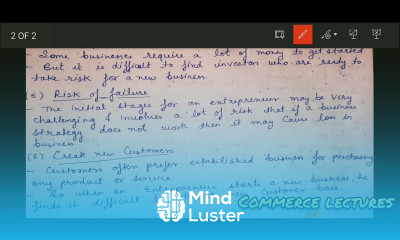 2 OF 2
Some businesses require a lot of money to get started.
- But it is difficult to find investors who are ready to
take risk for a new business.
(5) Risk of failure
- The initial stages for an entrepreneur may be very
challenging & involves a lot of risk that if a business
strategy does not work then it may cause loss in
business.
(6) Create new Customers
- Customers often prefer established business for purchasing
any product or service.
- So when an Entrepreneur starts a new business, he
finds it difficult customer base.
Mind
Luster
COMMERCE LECTURES